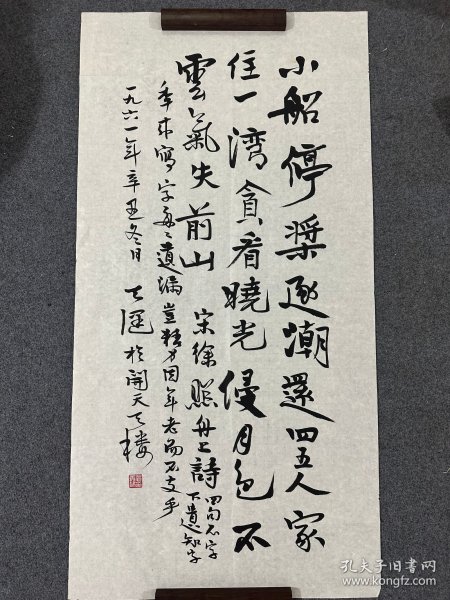 小船停槳逐潮還四五人家
住一湾貪看曉光侵月色不
雲氣失前山 宋徐照舟上詩 四句不字
下遺知字
年來寫字每每遺漏豈精力因年老而不支乎
一九六一年辛丑冬日 天 於開天天樓
孔夫子旧书网
www.kongfz.com